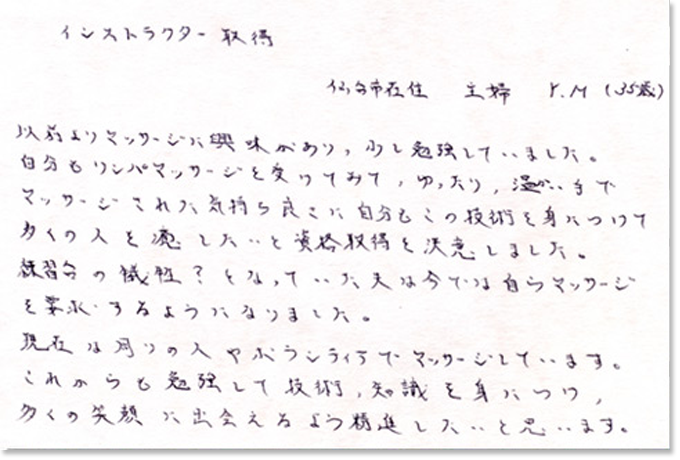 インストラクター取得
仙台市在住 主婦 Y.M(35歳)
以前よりマッサージに興味があり、少し勉強していました。
自分もリンパマッサージを受けてみて、ゆったり、温かい手で
マッサージされた気持ち良さに自分もこの技術を身につけて
多くの人を癒したいと資格取得を決意しました。
練習台の犠牲?となっていた夫は今では自らマッサージ
を要求するようになりました。
現在は周りの人やボランティアでマッサージしています。
これからも勉強して技術、知識を身につけ、
多くの笑顔に出会えるよう精進したいと思います。